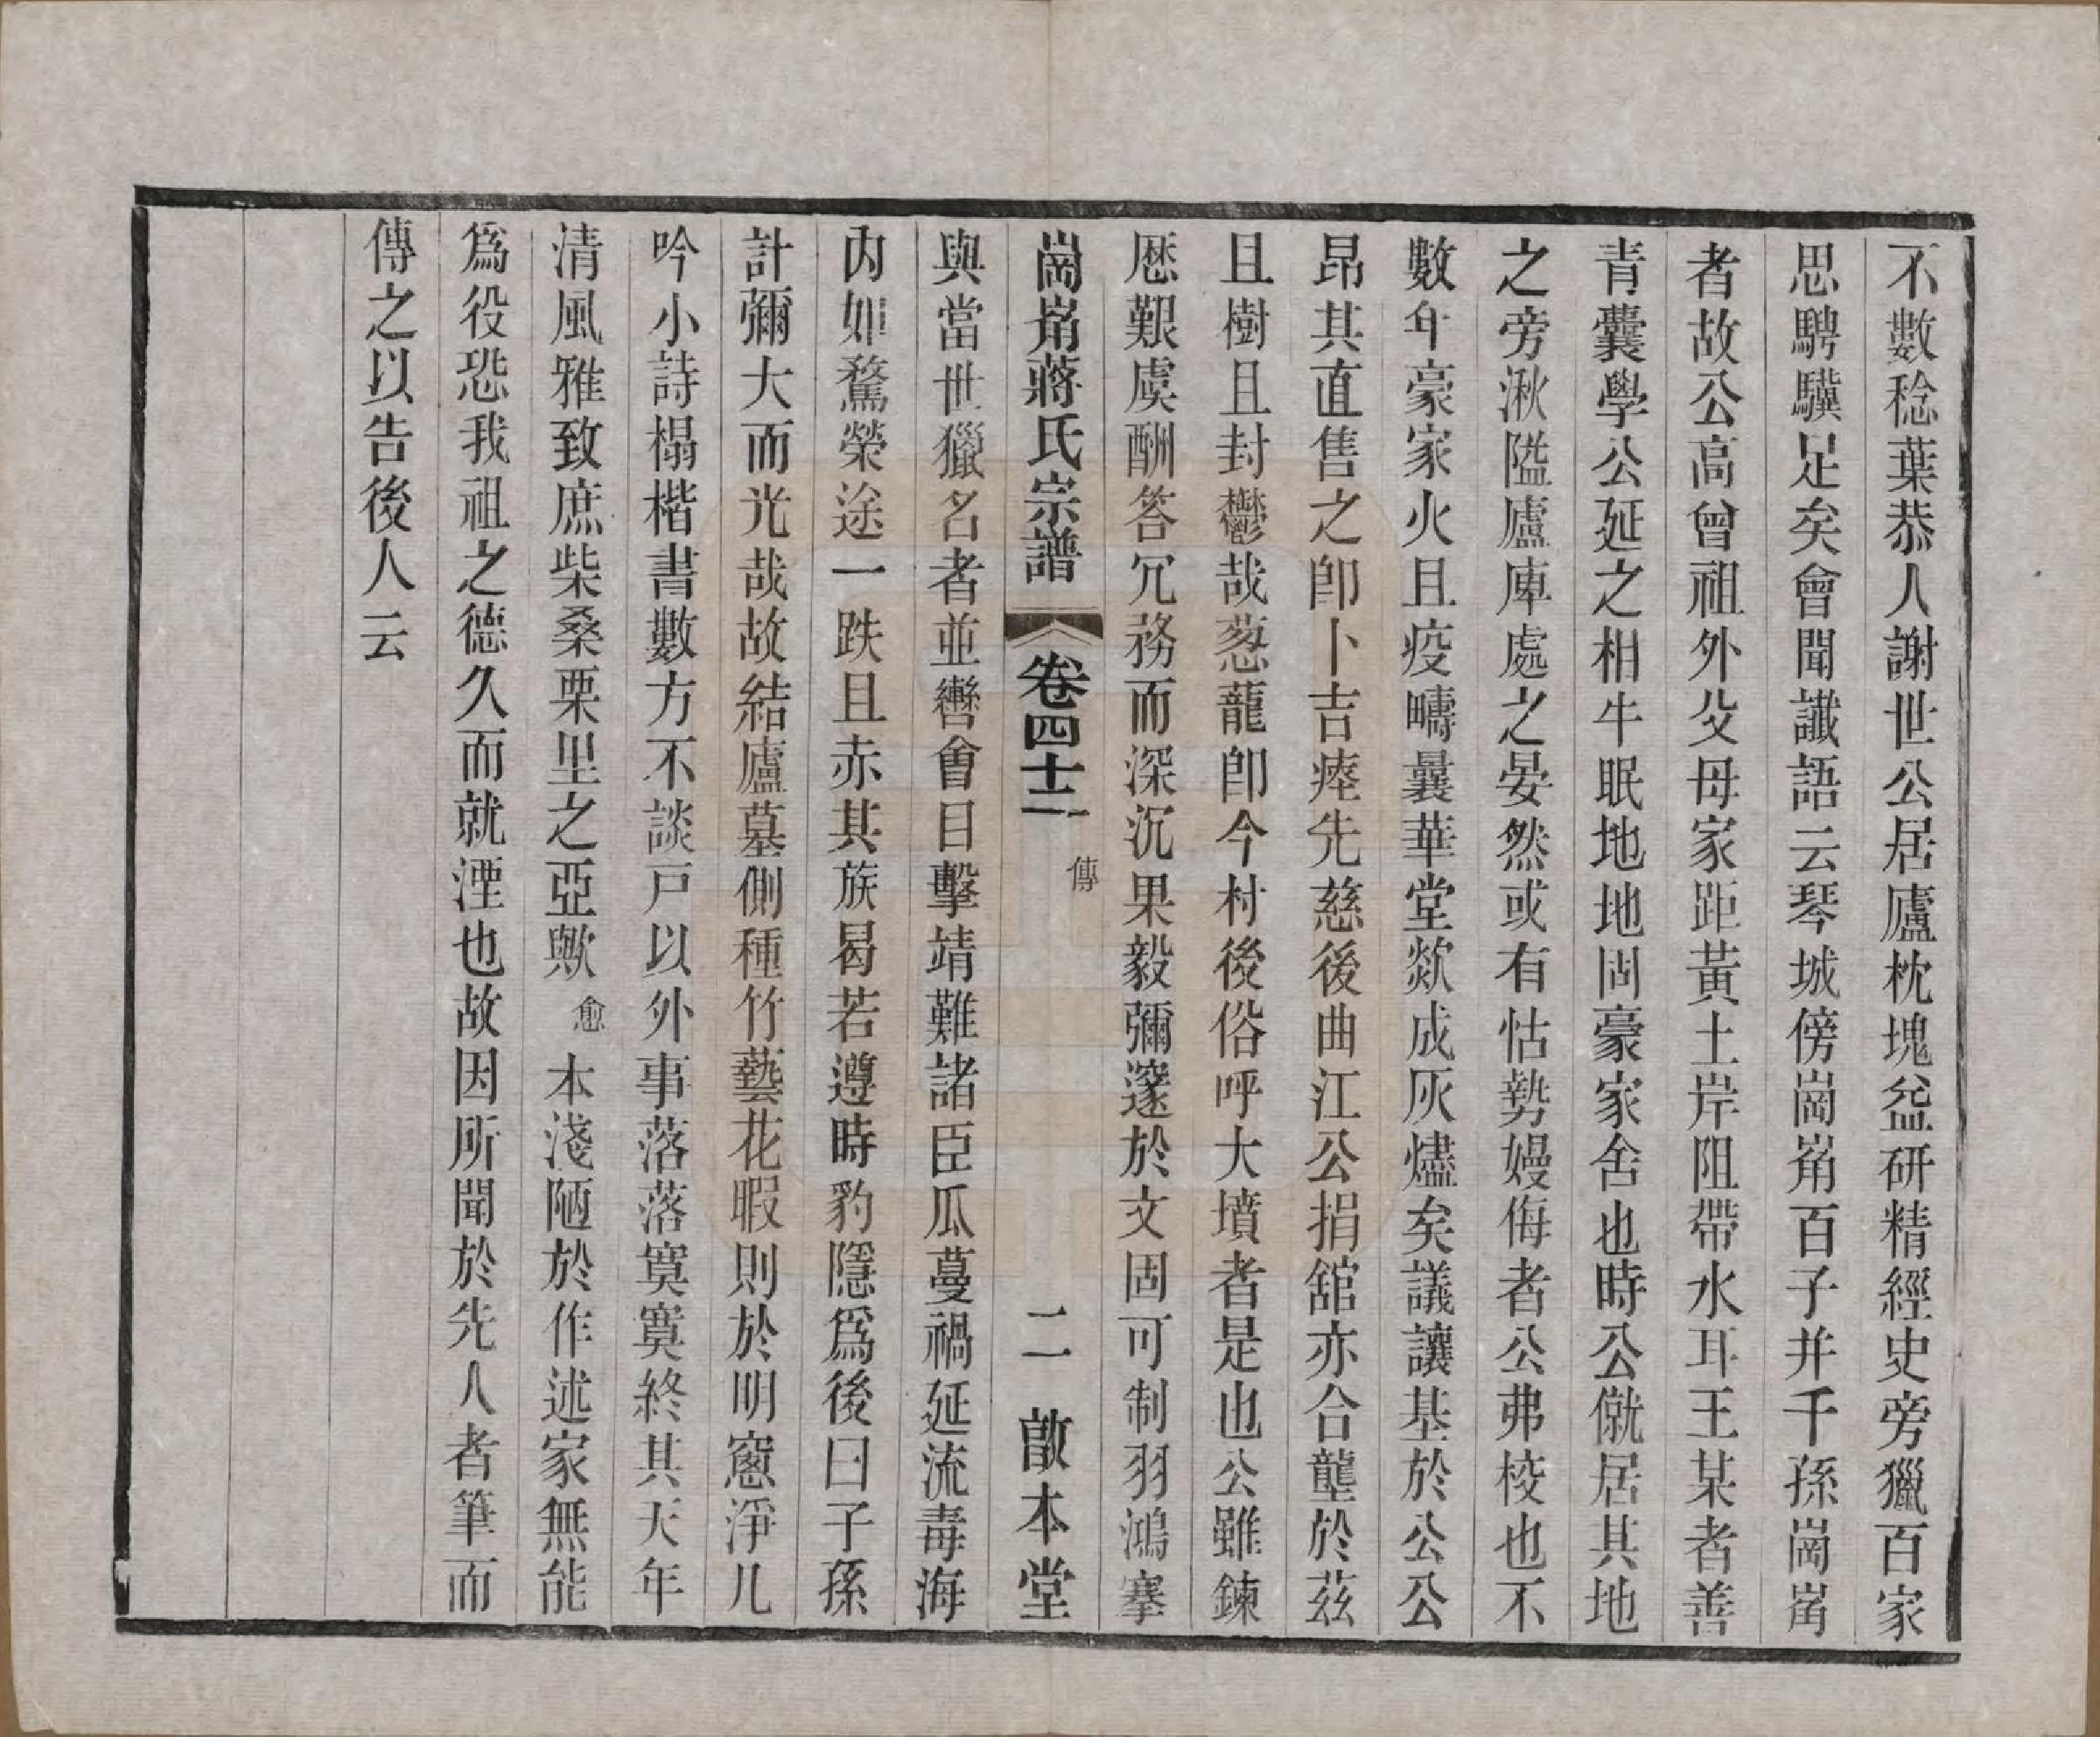 不數稔葉恭人謝世公居廬枕塊益研精經史旁獵百家
思騁驥足矣會聞讖語云琴城傍崗崭百子并千孫崗崭
者故公高曾祖外父母家距黃土岸阻帶水耳王某者善
青囊學公延之相牛眠地地固豪家舍也時公僦居其地
之旁湫隘廬庳處之晏然或有怙勢嫚侮者公弗校也不
數年豪家火且疫疇曩華堂歘成灰燼矣議讓基於公公
昂其直售之卽卜吉瘞先慈後曲江公捐舘亦合壟於茲
且樹且封鬱哉葱蘢卽今村後俗呼大墳者是也公雖鍊
歷艱虞酬答冗務而深沉果毅彌邃於文固可制羽鴻搴
崗崭蔣氏宗譜 卷四十二 傳 二 啟本堂
與當世獵名者並轡會目擊靖難諸臣瓜蔓禍延流毒海
內如騖榮途一跌且赤其族曷若遵時豹隱爲後曰子孫
計彌大而光哉故結廬墓側種竹藝花暇則於明窻淨几
吟小詩榻楷書數方不談戶以外事落落寞寞終其天年
清風雅致庶柴桑栗里之亞歟愈本淺陋於作述家無能
爲役恐我祖之德久而就湮也故因所聞於先人者筆而
傳之以告後人云